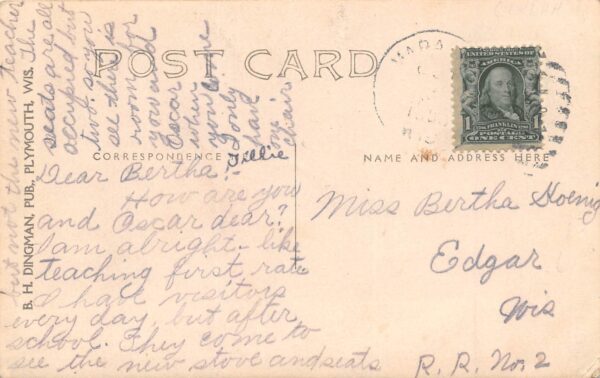 POST CARD
CORRESPONDENCE
NAME AND ADDRESS HERE
B. H. DINGMAN, PUB., PLYMOUTH, WIS.
Dear Bertha:
How are you
and Oscar dear?
I am alright - like
teaching first rate
I have visitors
every day, but after
school. They come to
see the new stove and seats
but not the new teacher
The
seats are all
occupied but
two. so you
see there is
room for
you and
Oscar
when
you come
I only
have
one
chair
Tillie
Miss Bertha Hoenig
Edgar
Wis
R. R. No. 2
WIS
POSTAGE
ONE CENT
FRANKLIN
1
1